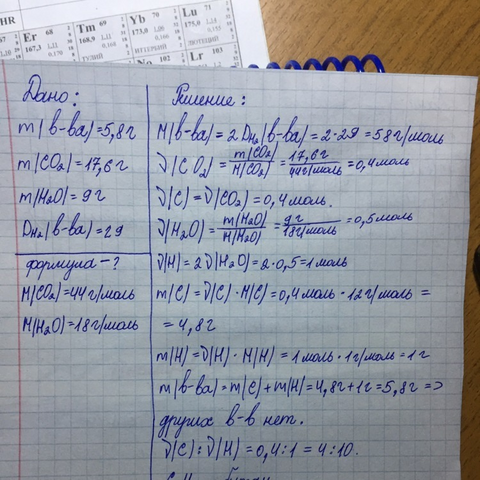 HR
Er 68
167,3
Tm 69
168,9
ТУЛИЙ
Yb 70
173,0
ИТТЕРБИЙ
Lu 71
175,0
No 102
Lr 103
Дано:
m(в-ва)=5,8г
m(CO₂)=17,6г
m(H₂O)=9г
D_H₂(в-ва)=29
формула-?
M(CO₂)=44г/моль
M(H₂O)=18г/моль
Решение:
M(в-ва)=2D_H₂(в-ва)=2·29=58г/моль
ν(CO₂)=m(CO₂)/M(CO₂)=17,6г/44г/моль=0,4моль
ν(C)=ν(CO₂)=0,4моль.
ν(H₂O)=m(H₂O)/M(H₂O)=9г/18г/моль=0,5моль
ν(H)=2ν(H₂O)=2·0,5=1моль
m(C)=ν(C)·M(C)=0,4моль·12г/моль=
=4,8г
m(H)=ν(H)·M(H)=1моль·1г/моль=1г
m(в-ва)=m(C)+m(H)=4,8г+1г=5,8г=>
других в-в нет.
ν(C):ν(H)=0,4:1=4:10.